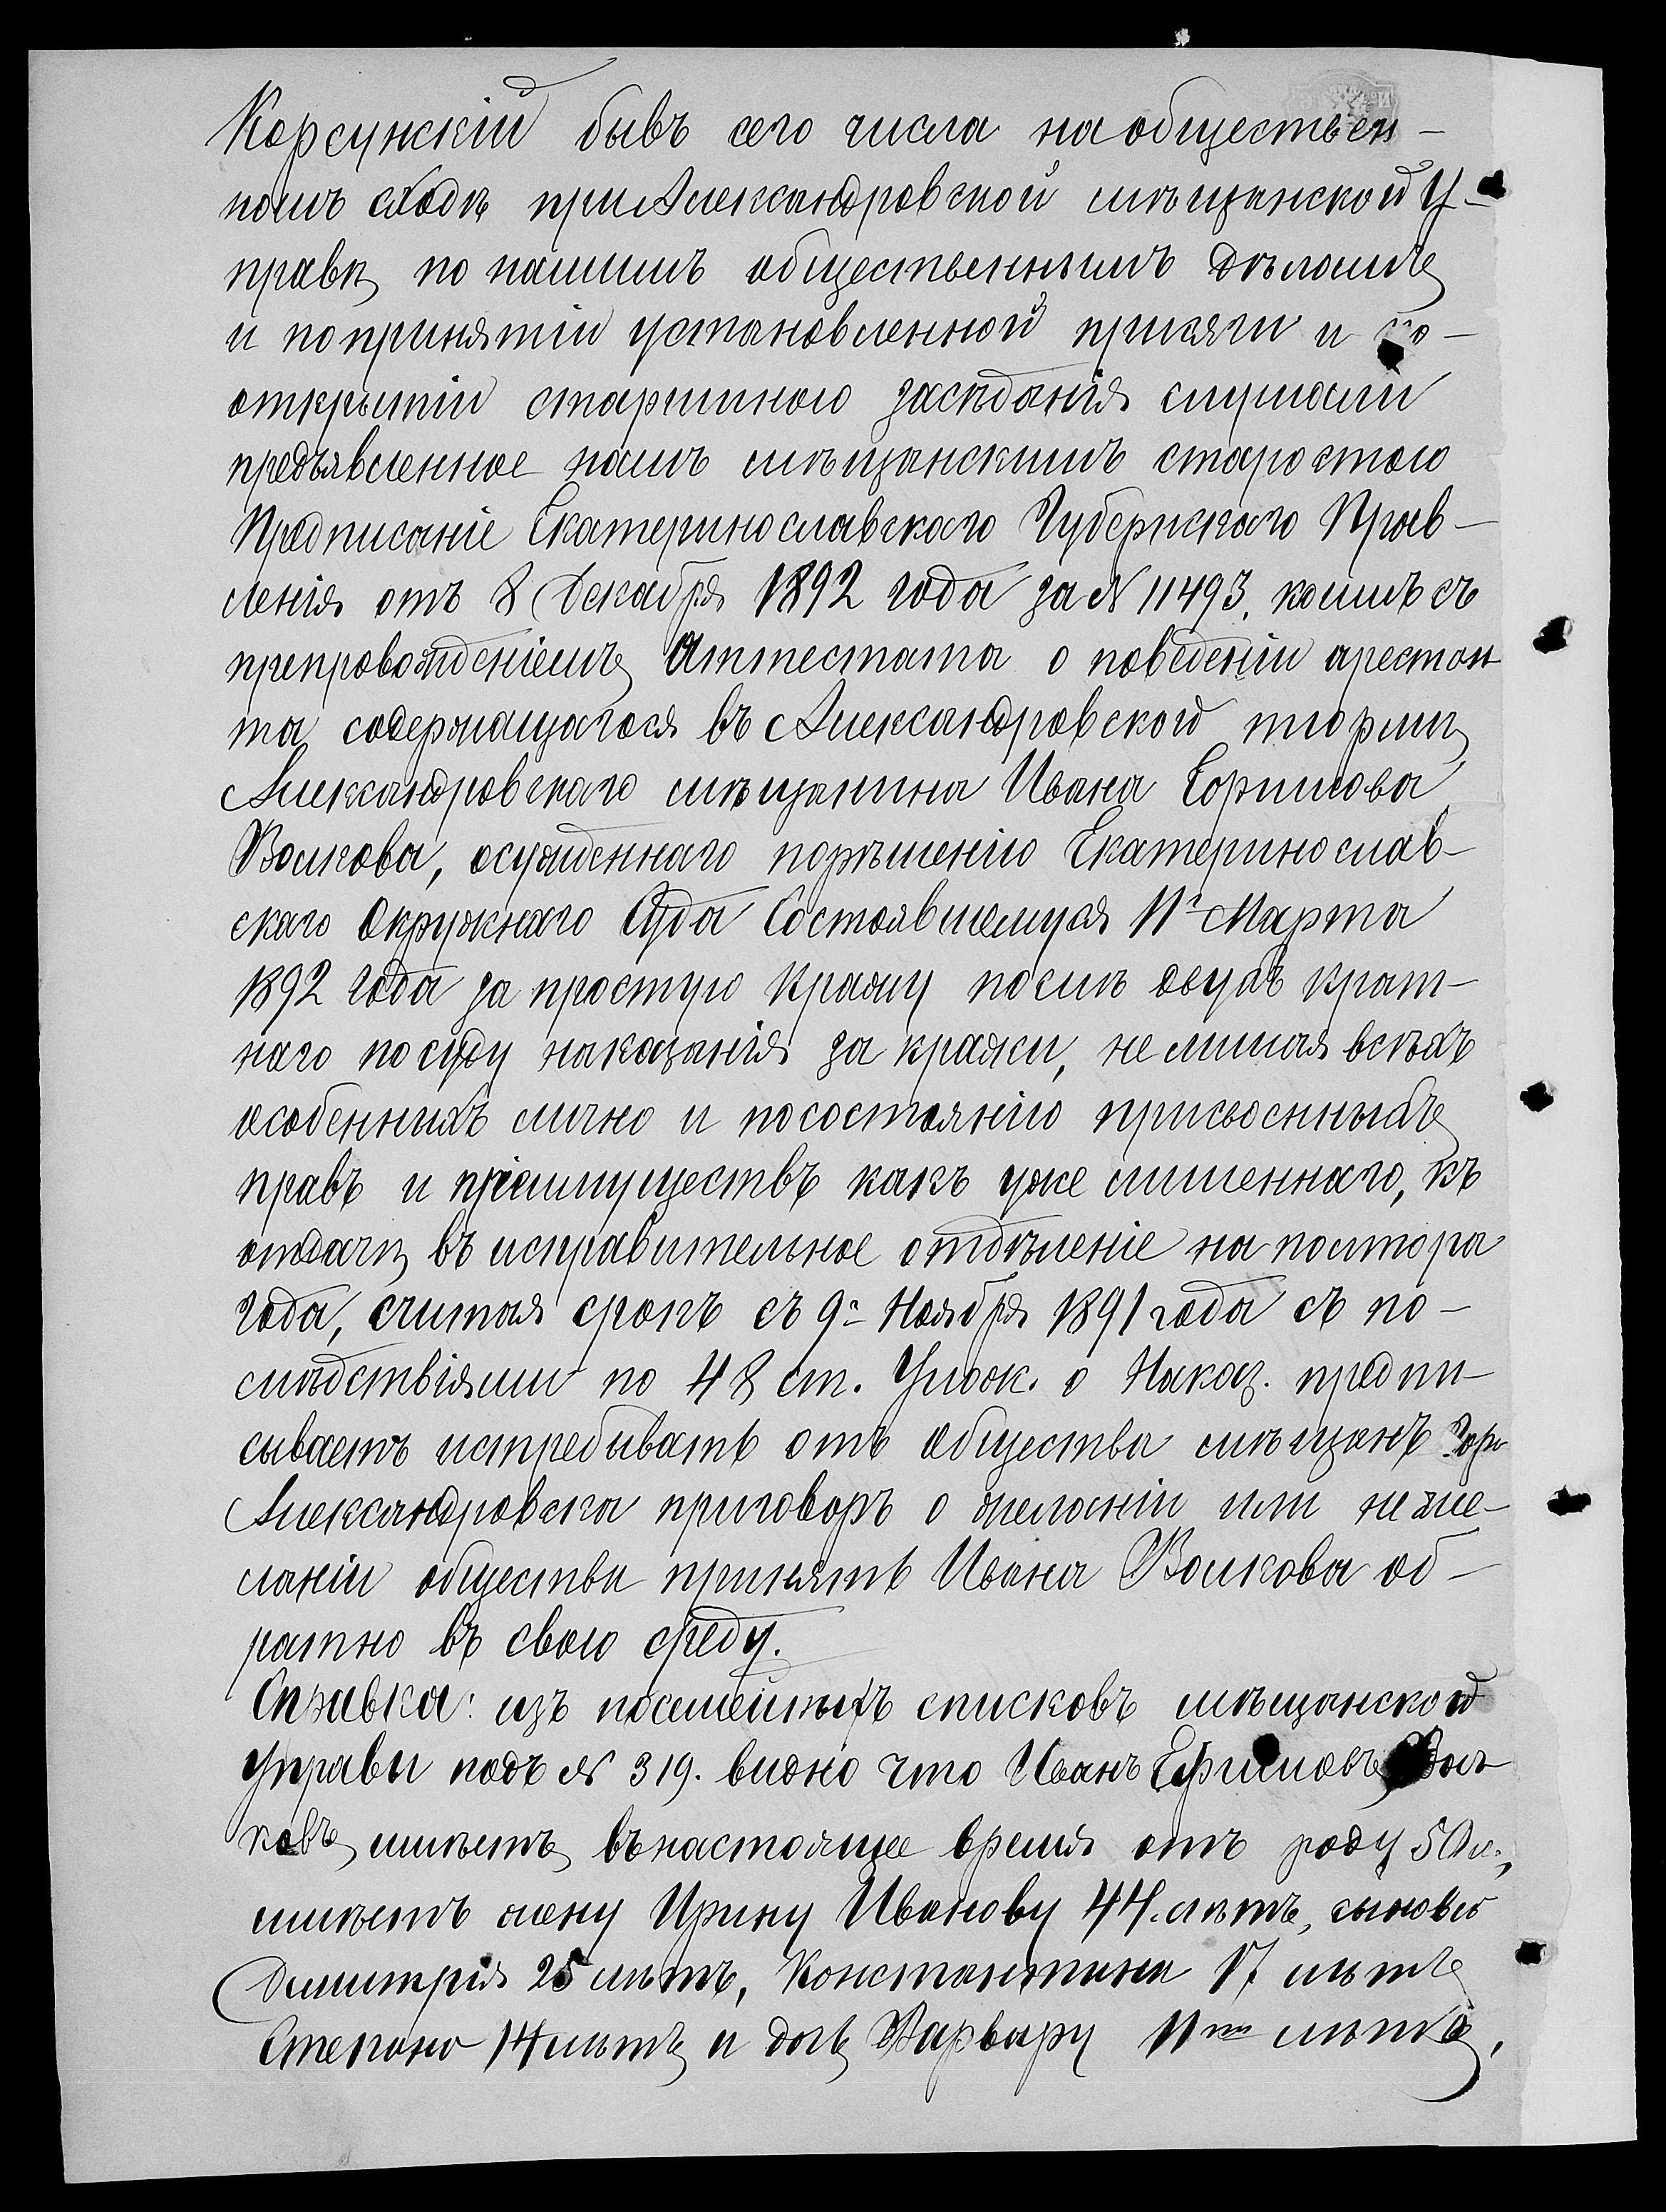 Корсунскій бывъ сего числа на обществен-
номъ сходѣ при Александровской мѣщанской У-
правѣ по нашимъ общественнымъ дѣламъ
и по принятіи установленной присяги и по-
открытіи старшиною засѣданія слушали
предъявленное намъ мѣщанскимъ старостою
Предписаніе Екатеринославскаго Губернскаго Прав-
ленія отъ 8 Декабря 1892 года за № 11493, коимъ съ
препровожденіемъ Аттестата о поведеніи арестан-
та содержащагося въ Александровской тюрьмѣ
Александровскаго мѣщанина Ивана Ефимова
Волкова, осужденнаго порѣшенію Екатеринослав-
скаго Окружнаго Суда Состоявшемуся 11г Марта
1892 года за простую кражу послѣ двухъ крат-
наго по суду наказанія за кражи, не лишая всѣхъ
особенныхъ лично и по состоянію присвоенныхъ
правъ и преимуществъ какъ уже лишеннаго, къ
отдачѣ въ исправительное отдѣленіе на полтора
года, считая срокъ съ 9г Ноября 1891 года съ по-
слѣдствіями по 48 ст. Улож. о Наказ. предпи-
сываетъ истребывать отъ общества мѣщанъ Гор.
Александровска приговоръ о желаніи или не же-
ланіи общества принять Ивана Волкова об-
ратно въ свою среду.
Справка: изъ посемейныхъ списковъ мѣщанской
Управы подъ № 319. видно что Иванъ Ефимовъ Вол-
ковъ имѣетъ въ настоящее время отъ роду 50 л.,
имѣетъ жену Ирину Иванову 44. лѣтъ, сыновьо
Димитрія 25 лѣтъ, Константина 17 лѣтъ
Степана 14 лѣтъ и дочь Варвару 11ти лѣтъ,